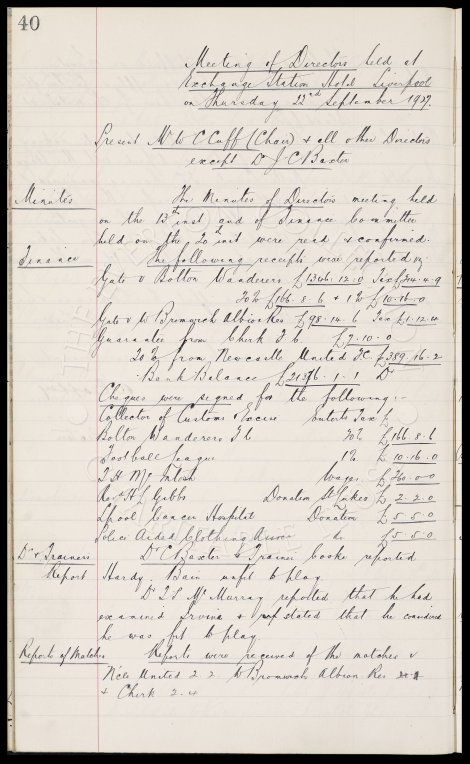 40
Meeting of Directors held at
Exchange Station Hotel Liverpool
on Thursday 22nd September 1927.
Present Mr W C Cuff (Chair) & all other Directors
except Dr J C Baxter
Minutes The Minutes of Directors meeting held
on the 13th inst and of Finance Committee
held on the 20th inst were read & confirmed.
Finance The following receipts were reported viz
Gate v Bolton Wanderers £1346.12.0 Tax £314.4.9
20% £166.8.6 & 1% £10.16.0
Gate v W Bromwich Albion Res £98.14.6 Tax £1.12.4
Guarantee from Chirk F.C. £7.10.0
20% from Newcastle United F.C. £389.16.2
Bank Balance £21376.1.1 Dr
Cheques were signed for the following:-
Collector of Customs & Excise Entertt Tax £
Bolton Wanderers F C 20% £166.8.6
Football League 1% £10.16.0
T H McIntosh Wages £360.0.0
Revd H L Gibbs Donation St Lukes £2.2.0
Lpool Cancer Hospital Donation £5.5.0
Police Aided Clothing Assoc do £5.5.0
Dr & Trainers Dr C Baxter & Trainer Cooke reported
Report Hardy. Bain unfit to play.
Dr T S McMurray reported that he had
examined Irvine & stated that he considered
he was fit to play.
Reports of Matches Reports were received of the matches v
N'cle United 2.2 W Bromwich Albion Res
& Chirk 2.4